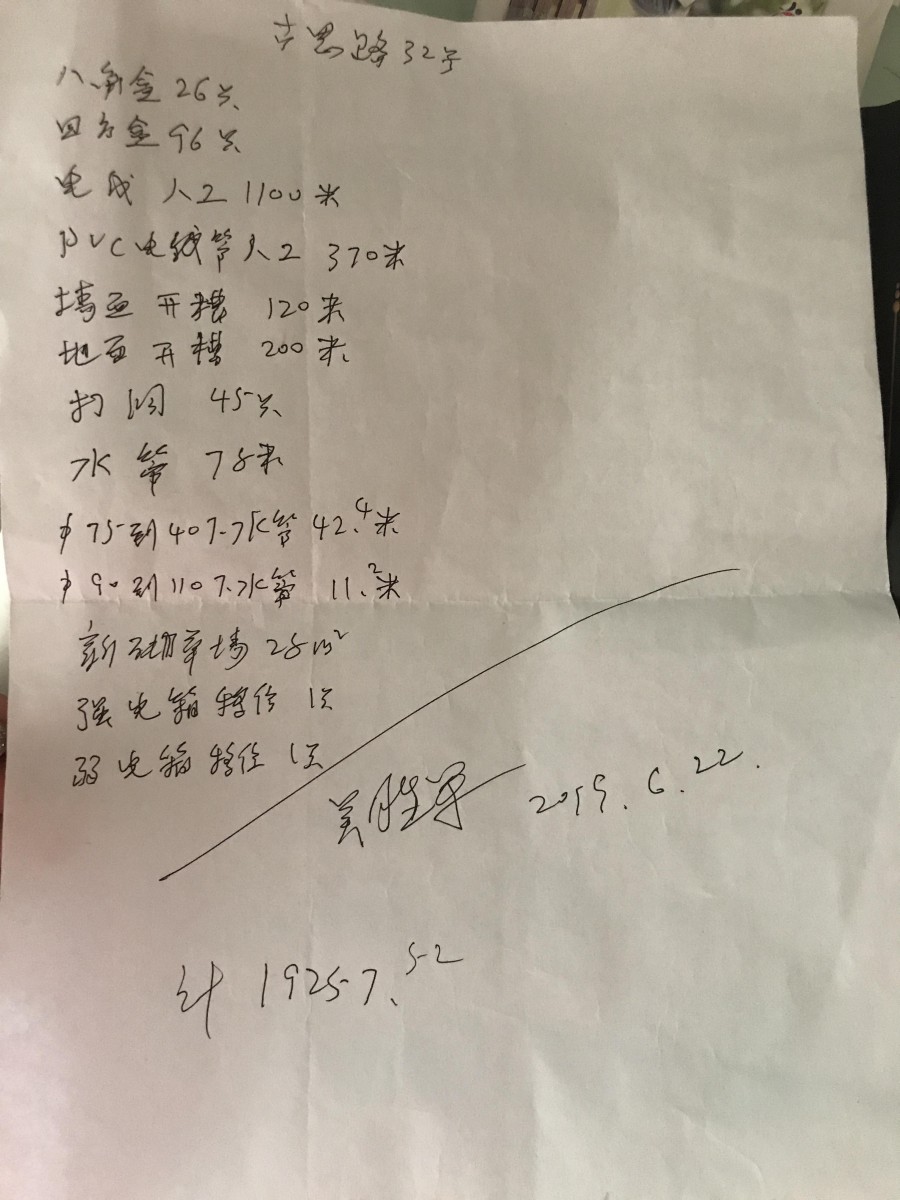 古思路32号
八角盒26只
四方盒96只
电线 人工 1100米
PVC电线管人工 370米
墙面开槽 120米
地面开槽 200米
打洞 45只
水管 78米
φ75到40下水管 42.4米
φ90到110下水管 11.2米
新砌单墙 28m²
强电箱移位 1只
弱电箱移位 1只
2019.6.22.
计 19257.52